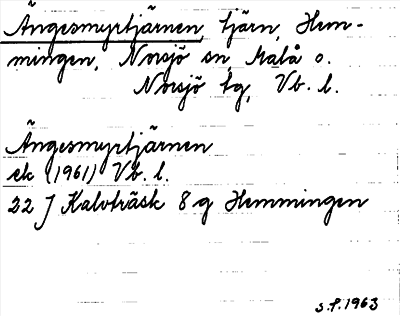 Ängesmyrtjärnen, tjärn, Hem-
mingen, Norsjö sn, Malå o.
Norsjö tg, Vb. l.
Ängesmyrtjärnen
ek (1961) Vb. l.
22 J Kalvträsk 8 g Hemmingen
S.P. 1963